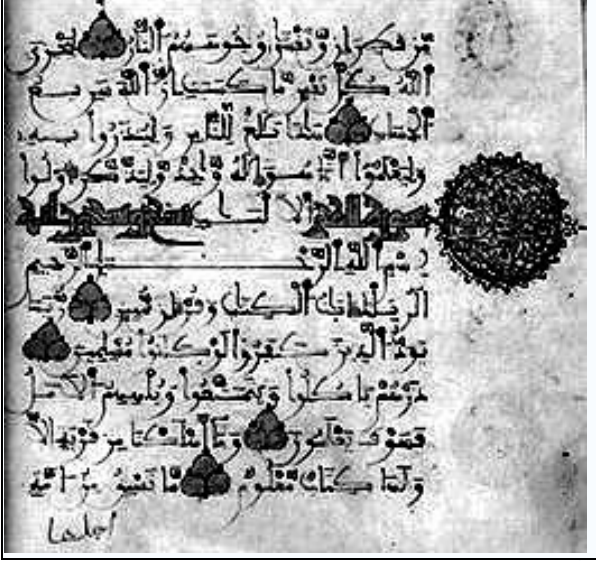 مّن قطران وّتغشى وجوههم النّار ليجزى
الله كلّ نفس مّا كسبت إنّ الله سريع
الحساب هذا بلغ لّلنّاس ولينذروا به
وليعلموا أنّما هو إله وّحد وّليذّكّر أولوا
سورة الحجر الالبب
بسم الله الرّحمن الرّحيم
الر تلك ءايت الكتب وقرءان مّبين رّبما
يودّ الّذين كفروا لو كانوا مسلمين
ذرهم ياكلوا ويتمتّعوا ويلههم الامل
فسوف يعلمون وما أهلكنا من قرية الّا
ولها كتاب مّعلوم مّا تسبق من امّة
اجلها